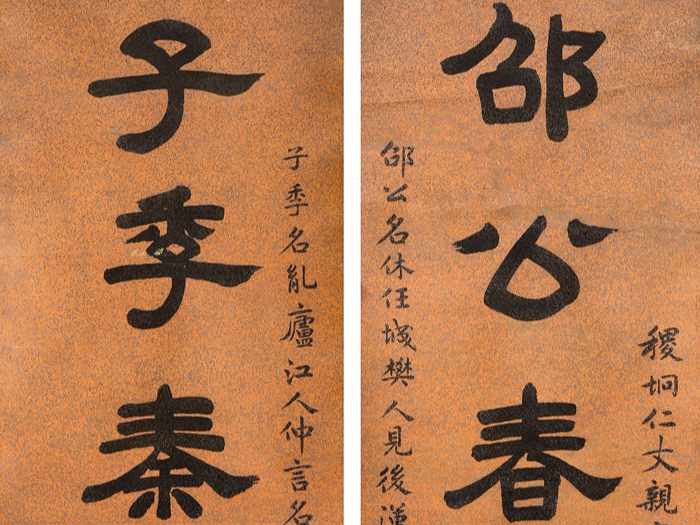 稷坰仁丈親
邵公春
邵公名休任城樊人見後漢
子季名胤廬江人仲言名
子季秦